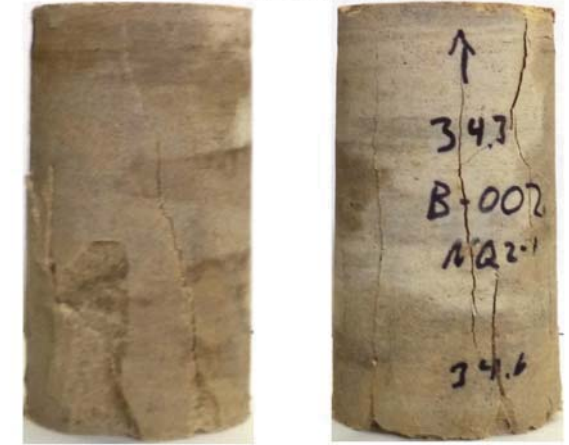 34.3
B-002
NQ2-1
34.6